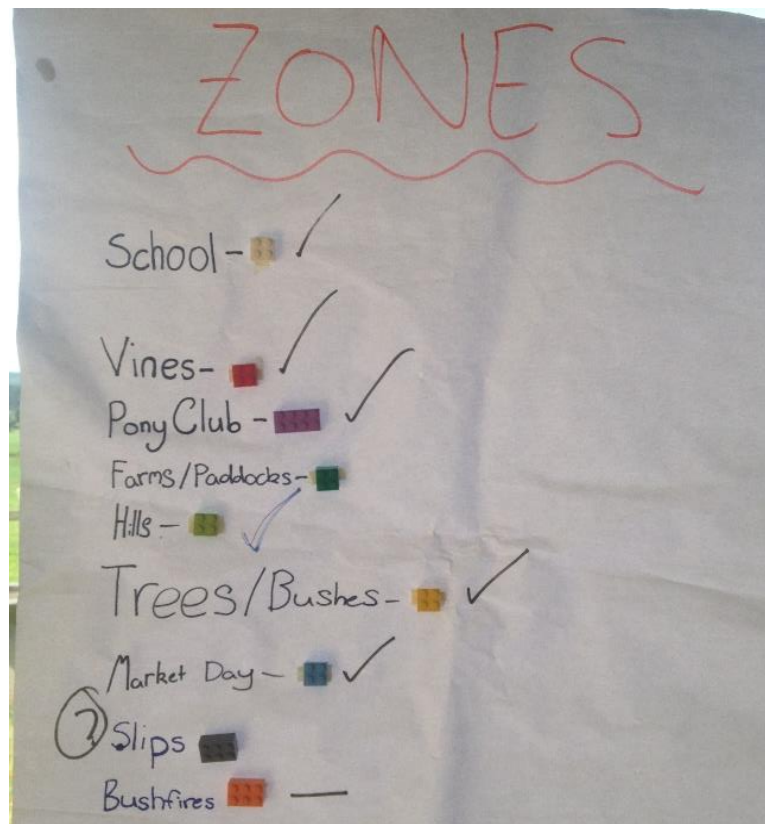 ZONES
School -
Vines-
Pony Club -
Farms/Paddocks-
Hills -
Trees/Bushes-
Market Day -
? Slips
Bushfires